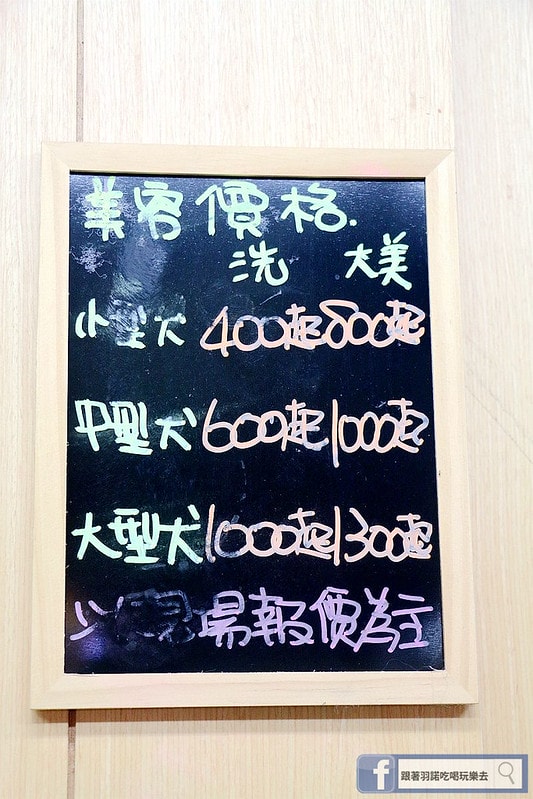 美容價格.
洗 大美
小型犬 400起 800起
中型犬 600起 1000起
大型犬 1000起 1300起
以現場報價為主
跟著羽諾吃喝玩樂去